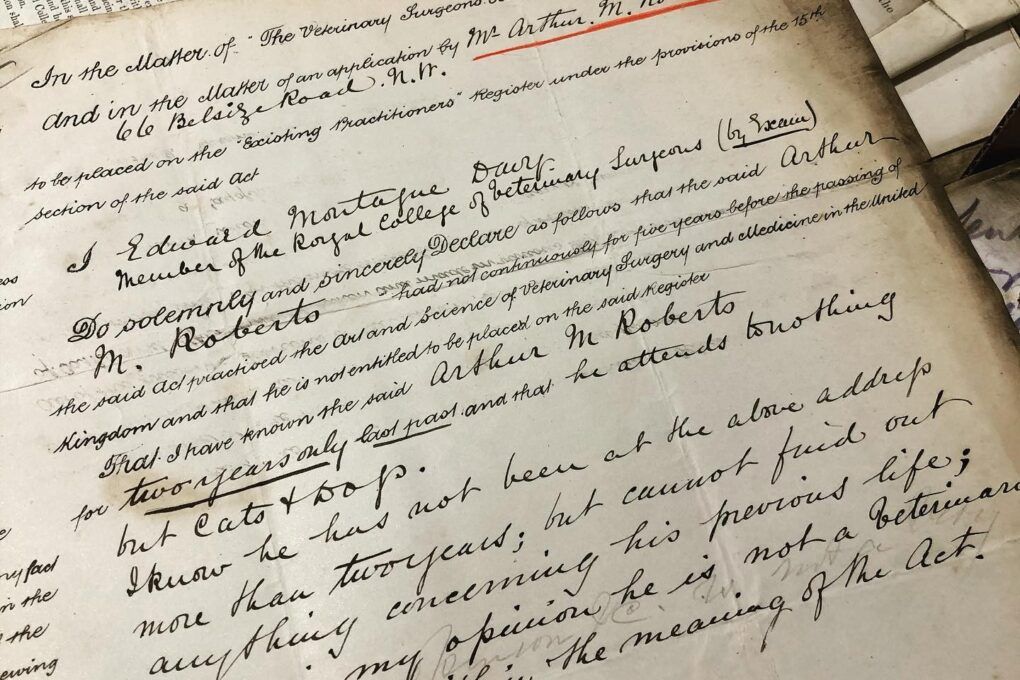 In the Matter of "The Veterinary Surgeons
and in the Matter of an application by Mr Arthur. M.
66 Belsize Road. N.W.
to be placed on the "Existing Practitioners" Register under the provisions of the 15th
section of the said Act
I Edward Montague Davy.
Member of the Royal College of Veterinary Surgeons (by Exam)
Do solemnly and sincerely Declare as follows that the said Arthur
M. Roberts had not continuously for five years before the passing of
the said Act practised the Art and Science of Veterinary Surgery and Medicine in the United
Kingdom and that he is not entitled to be placed on the said Register
That I have known the said Arthur M Roberts
for two years only last past and that he attends to nothing
but Cats & Dogs.
I know he has not been at the above address
more than two years; but cannot find out
anything concerning his previous life;
my opinion he is not a Veterinary
the meaning of the Act.